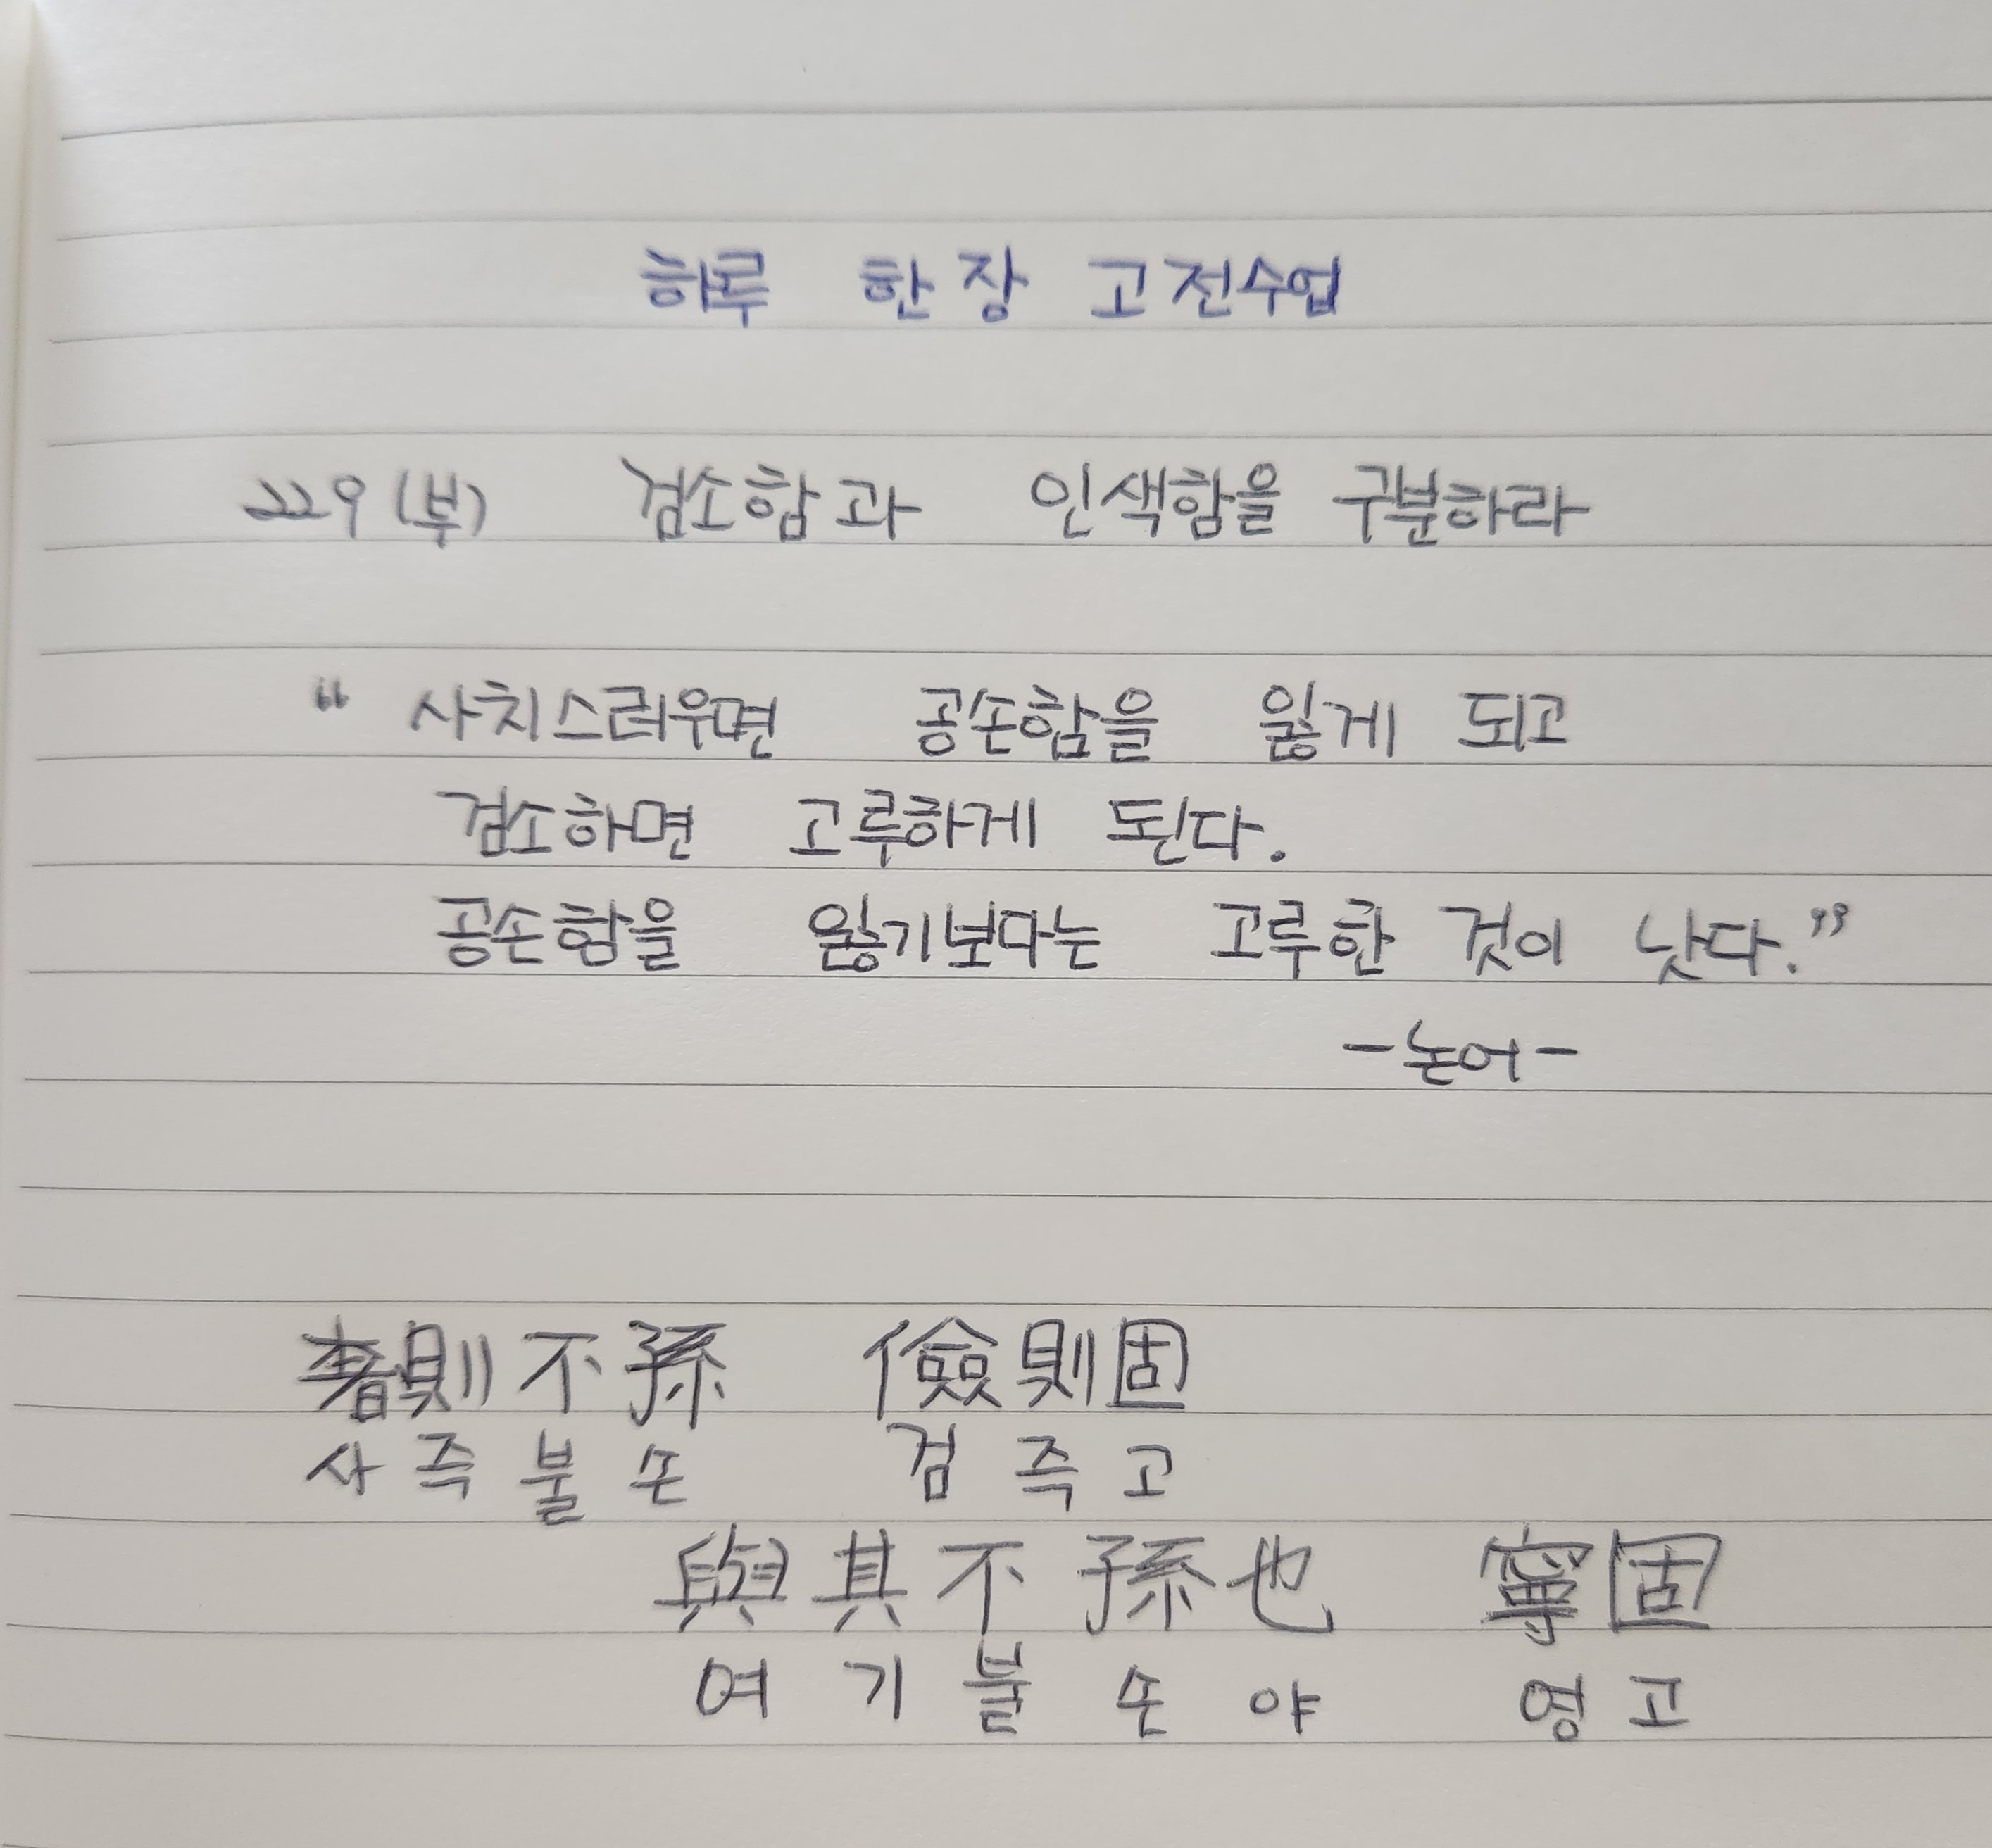 하루 한 장 고전수업
229(부) 검소함과 인색함을 구분하라
“ 사치스러우면 공손함을 잃게 되고
검소하면 고루하게 된다.
공손함을 잃기보다는 고루한 것이 낫다.”
-논어-
奢則不孫 儉則固
사즉불손 검즉고
與其不孫也 寧固
여기불손야 영고